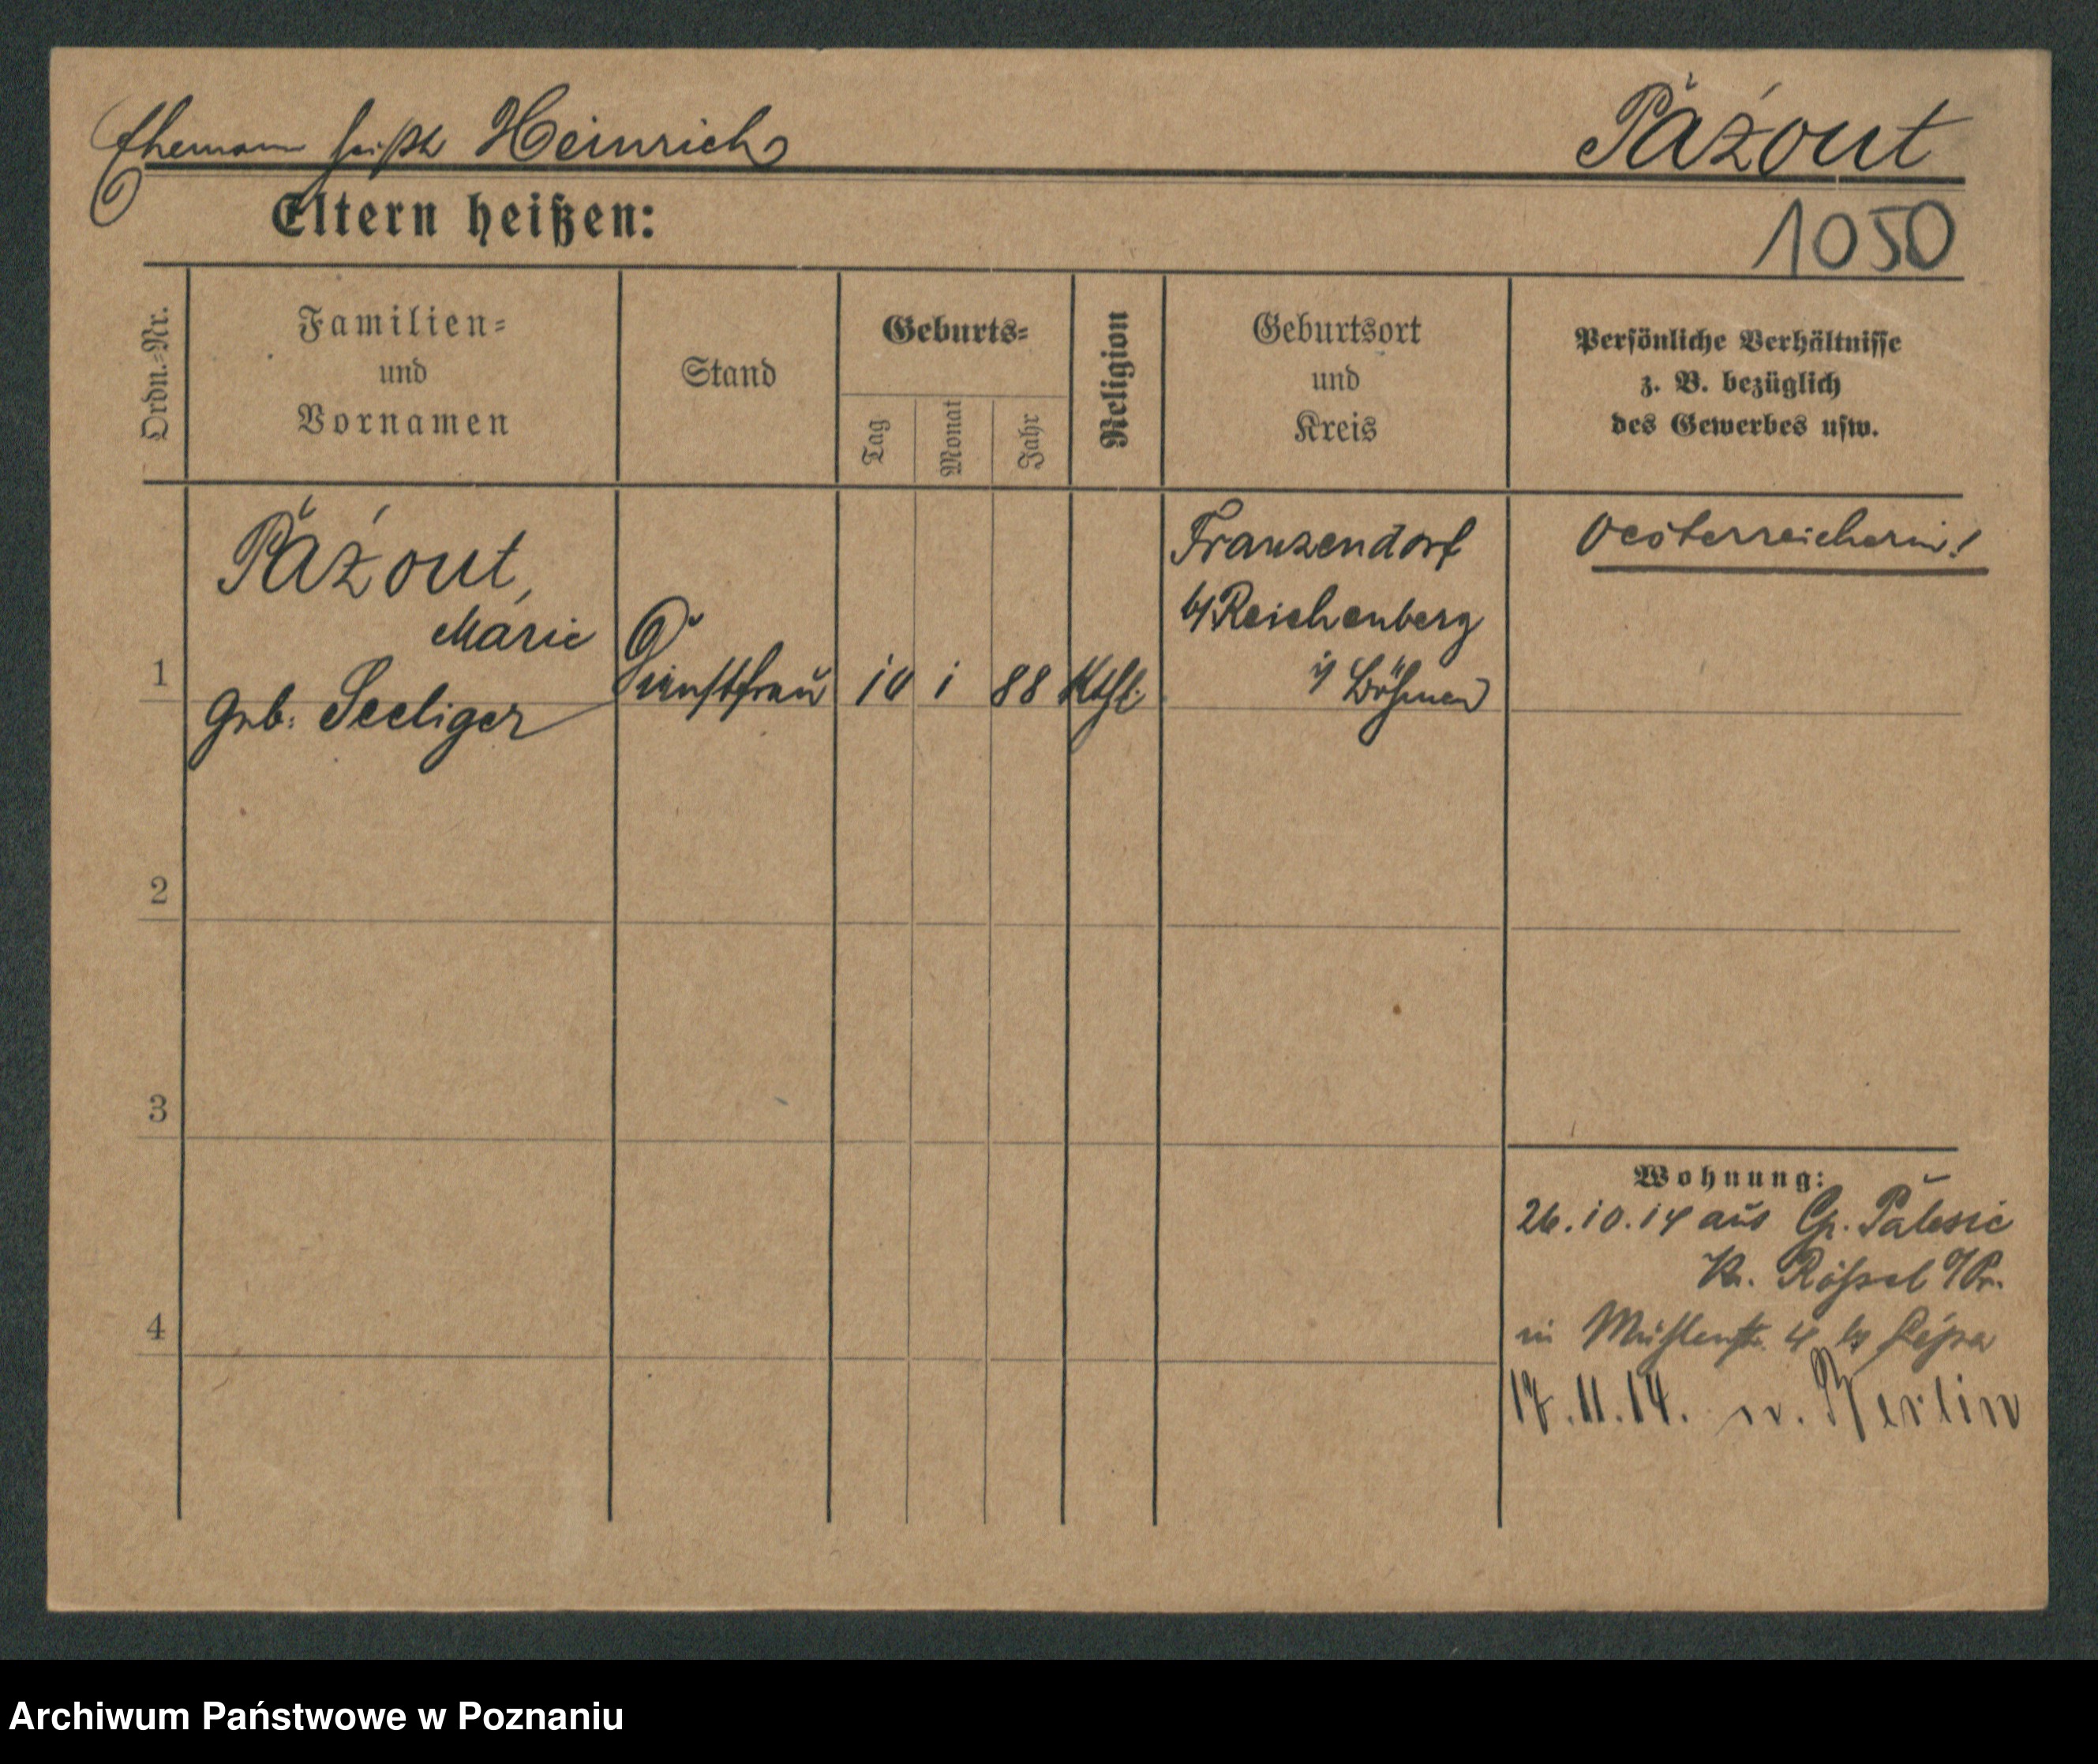 Ehemann heißt Heinrich Pažout
Eltern heißen:
1050
Ordn.-Nr.
Familien-
und
Vornamen
Stand
Geburts-
Tag
Monat
Jahr
Religion
Geburtsort
und
Kreis
Persönliche Verhältnisse
z. B. bezüglich
des Gewerbes usw.
1
Pažout,
Marie
geb. Seeliger
10 1 88 Kthl.
Franzendorf
b/Reichenberg
i/ Böhmen
Oesterreicherin!
2
3
4
Wohnung:
26.10.14 aus Gr.
Kr. Rößel O/Pr.
in Mühlenstr. 4
17.11.14. n. Berlin
Archiwum Państwowe w Poznaniu